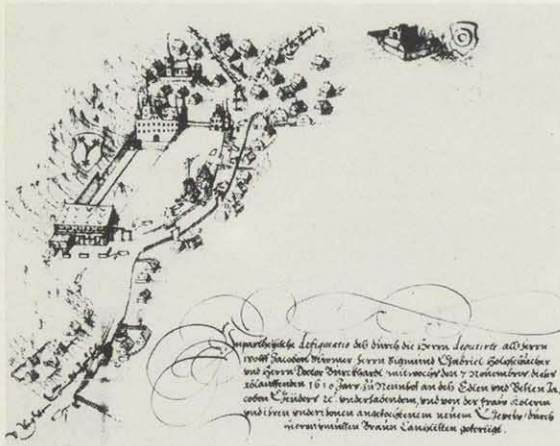 Unpartheyische defiguratio deß durch die Herrn deputirte alß Herrn
Wolff Jacoben Stromer Herrn Sigmund Gabriel Holzschuacher
und Herrn Doctor Burckhardt mitwochs den 7 Novembris dieses
ablauffenden 1610 Jars, zu Neunhof an deß Edlen und Vesten Ja,
coben Geuders &c. underladendem, und von der fraw Kolerin
und ihren undertonen angefochtenem neuem Gewehr, durch
Hieronymussen Braun Canzlisten gefertigt.